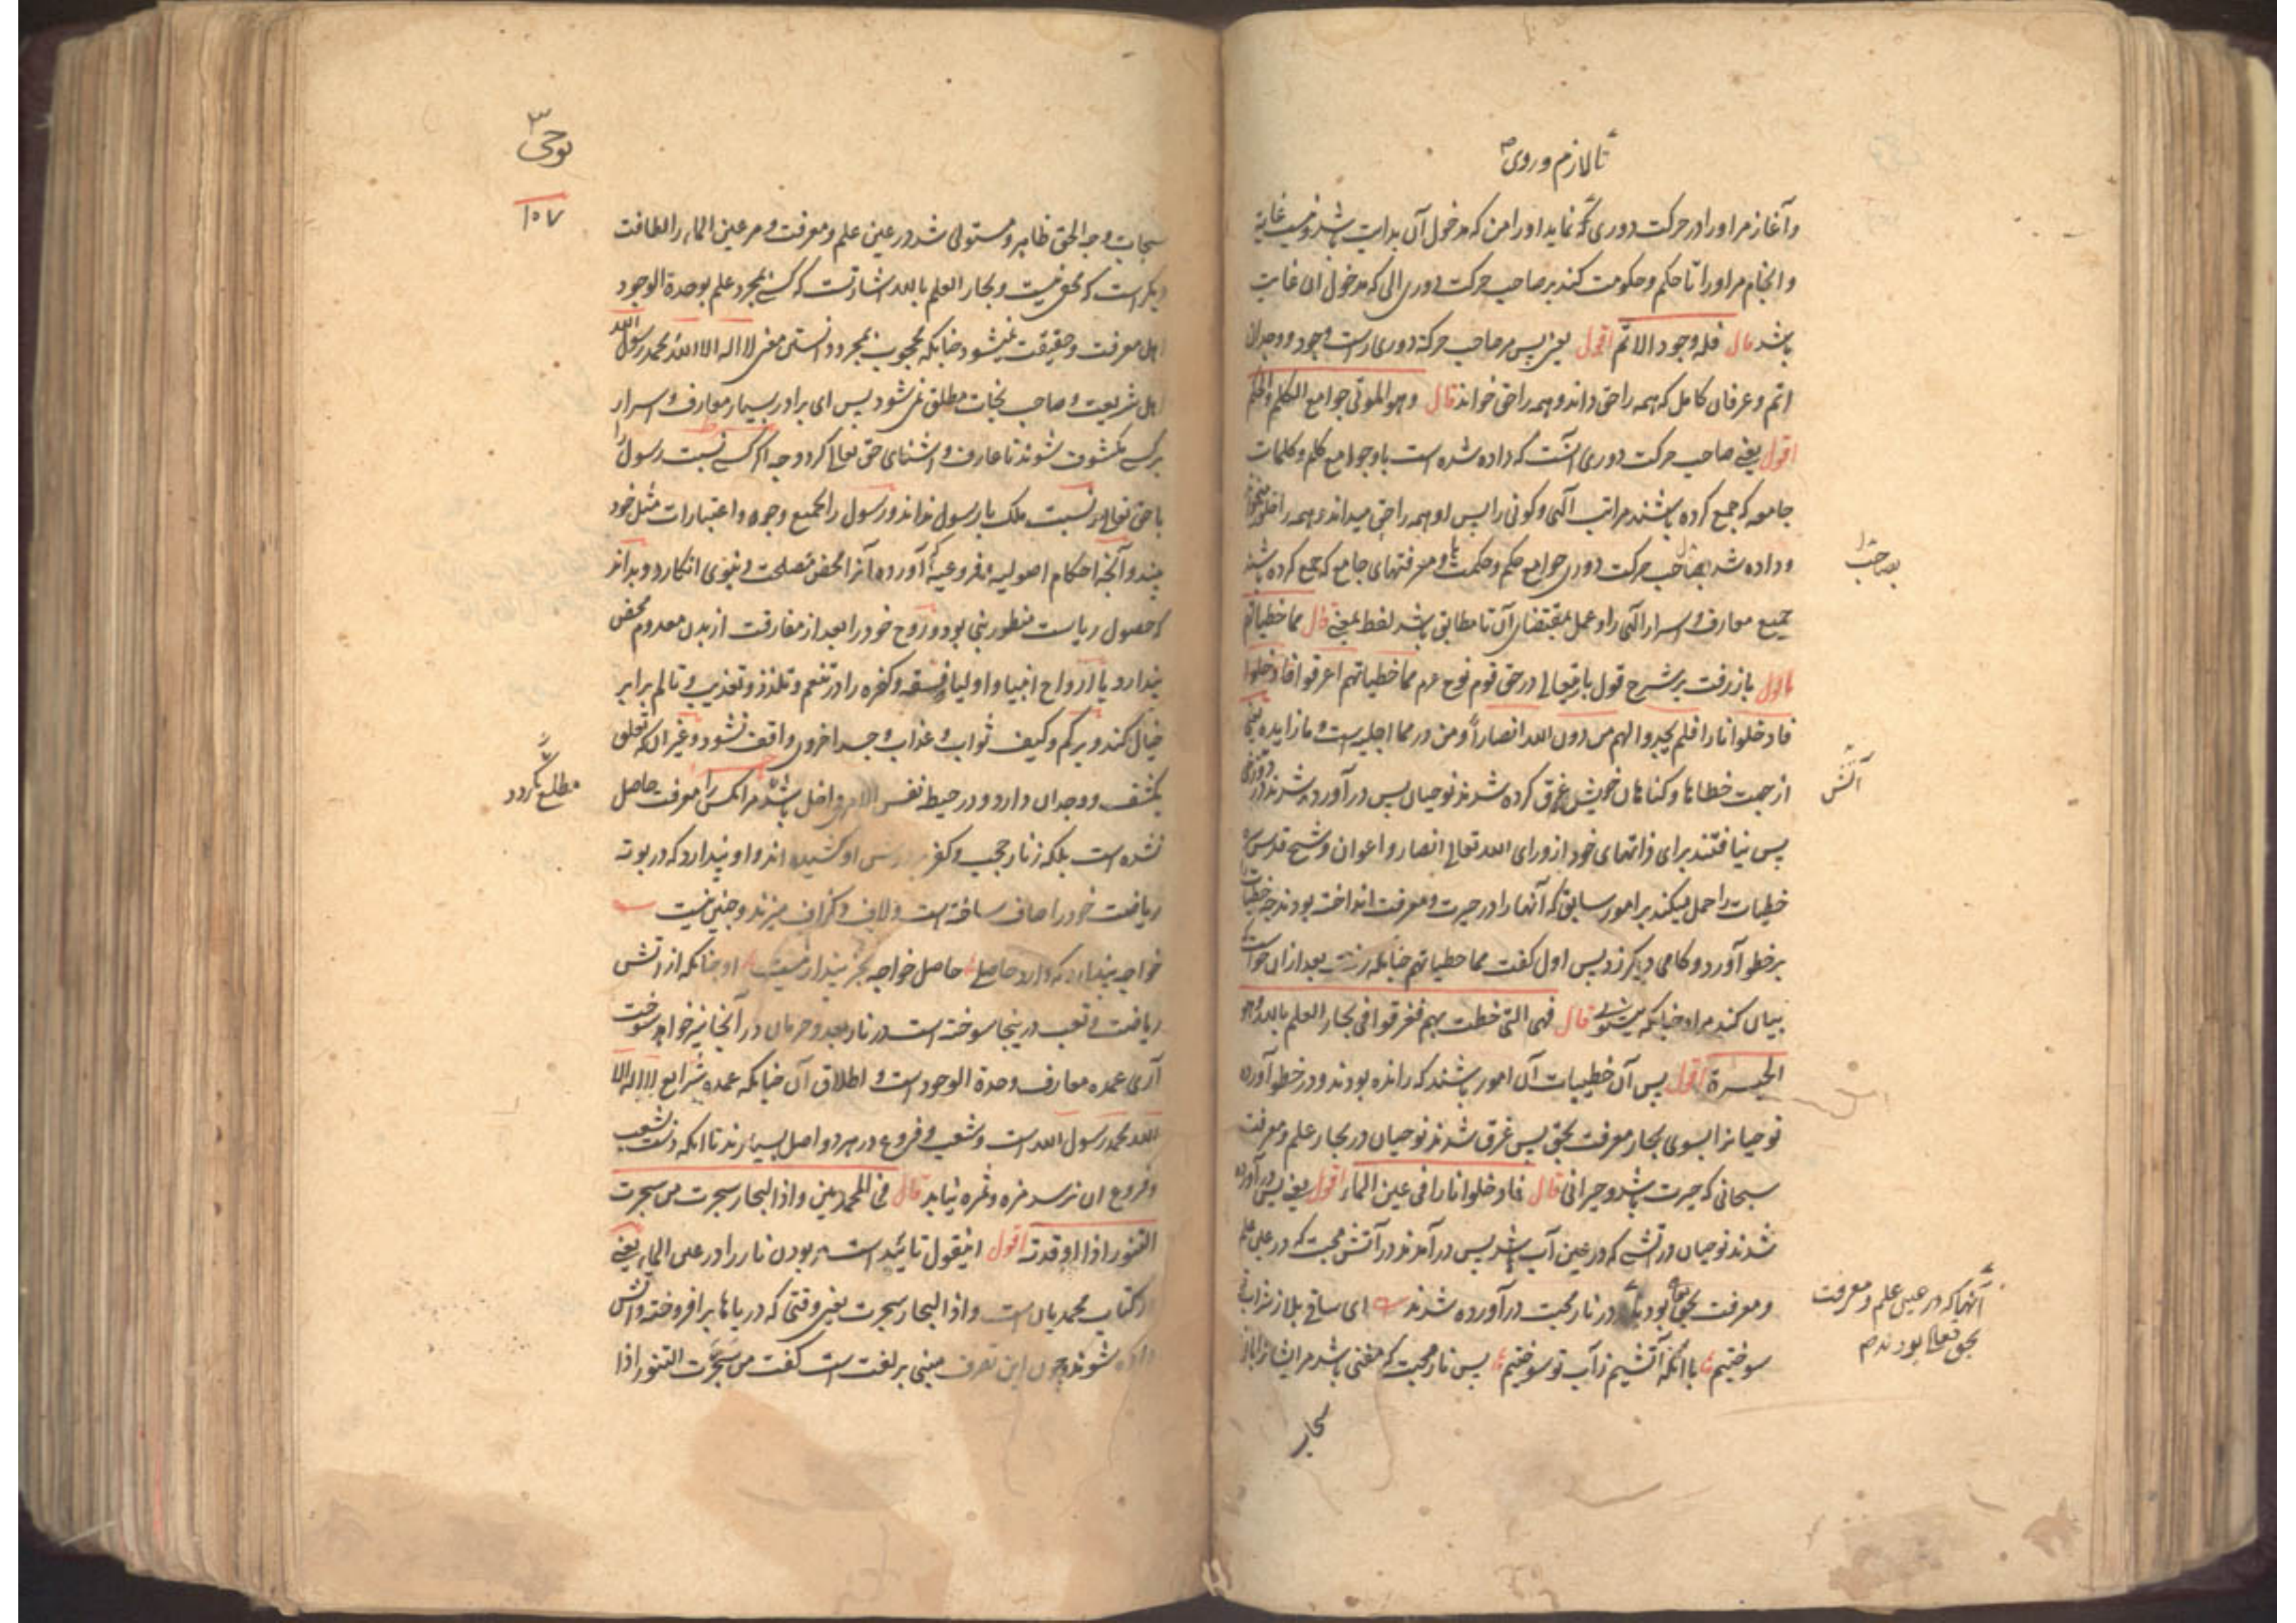 تا لازم و روی
و آغاز مر او را در حرکت دوری که نماید او را من که مدخول آن بدایت باشد و نیست غایة
و انجام مر او را تا حکم و حکومت کند بر صاحب حرکت دوری الی که مدخول ان غایت
باشد قال فله وجود الاتم اقول یعنی پس مر صاحب حرکة دوری راست وجود و وجدان
اتم و عرفان کامل که همه را حق داند و همه را حق خواند قال و هو الموتی جوامع الکلم و الحکم
اقول یعنی صاحب حرکت دوری آنست که داده شده است باو جوامع کلم و کلمات
جامعه که جمع کرده باشند مراتب آلهی و کونی را پس او همه را حق میداند و همه را حق
و داده شد حرکت دوری جوامع حکم و حکمت با و معرفتهای جامع که جمع کرده باشند
بصاحب
جمیع معارف و اسرار الهی را و عمل بمقتضای آن تا مطابق باشد لفظ بمعنی قال مما خطیاتهم
اقول باز رفت بر شرح قول باریتعالی در حق قوم نوح عرم مما خطیاتهم اغرقوا فادخلوا
فادخلوا نارا فلم یجدوا لهم من دون الله انصاراً و من در مما اجلیه است و ما زایده یعنی
از جهت خطاها و کناهان خویش غرق کرده شدند نوحیان پس در آورده شدند در
آتش
پس نیافتند برای ذاتهای خود از ورای الله تعالی انصار و اعوان و شیخ قدس سره
خطیات را حمل میکند بر امور سابق که آنها را در حیرت و معرفت انداخت بودند چه خطیات
بر خطو آورد و کامی دیکر زد پس اول کفت مما خطیاتهم چنانکه بعد ازان خواست که
بیان کند مراد چنانکه میشنوی قال فهی التی خطت بهم فغرقوا فی بحار العلم بالله و هو
الحیرة اقول پس آن خطیات آن امور باشند که رانده بودند و در خطو آورده
نوحیانرا بسوی بحار معرفت بحق پس غرق شدند نوحیان در بحار علم و معرفت
سبحانی که حیرت باشد و حیرانی قال فادخلوا نارا فی عین الماء اقول یعنی پس در آورده
شدند نوحیان در آتشی که در عین آب باشد پس در آمدند در آتش محبت که در عین علم
و معرفت بحق بود در نار محبت در آورده شدند ای ساقی بلا ز شراب
آنهاکه در عین علم و معرفت
بحق تعالی بودند
سوختیم با آنکه آتشیم ز آب تو سوختیم پس نار محبت که مفنی باشد مر ایشانرا
بحار
نوحی
۱۵۷
سبحات وجه الحق ظاهر و مستولی شد در عین علم و معرفت و مر عین الماء را لطافت
دیکر است که مخفی نیست و بحار العلم بالله اشارتست که کسی بمجرد علم بوحدة الوجود
اهل معرفت و حقیقت نمیشود چنانکه محجوب بمجرد دانستن معنی لا اله الا الله محمد رسول الله
اهل شریعت و صاحب نجات مطلق نمی شود پس ای برادر بسیار معارف و اسرار
بر کسی مکشوف شوند تا عارف و آشنای حق تعالی کردد چه اگر کسی نسبت رسول را
با حق تعالی نسبت ملک با رسول نداند و رسول را بجمیع وجوه و اعتبارات مثل خود
بیند و آنچه احکام اصولیه و فروعیه آورده آنرا محض مصلحت دنیوی انکارد و بداند
که حصول ریاست منظور نبی بود و روح خود را بعد از مفارقت از بدن معدوم محض
پندارد یا ارواح انبیا و اولیا و فسقه و کفره را در تنعم و تلذذ و تعذیب و تالم برابر
خیال کند و بر کم و کیف ثواب و عذاب و جسد اخروی واقف نشود و غیر آنکه تعلق
مطلع نکردد
بکشف و وجدان دارد و در حیطه نفس الامر داخل باشد مر انکس را معرفت حاصل
نشده است بلکه زنار حجب و کفر او کشیده اند و او پندارد که در بوته
ریاضت خود را صاف ساخته است و لاف و کزاف میزند و چنین نیست
خواجه پندارد که دارد حاصلی حاصل خواجه بجز پندار نیست او چنانکه از آتش
ریاضت و تعب در ینجا سوخته است در نار بعد و حرمان در آنجا نیز خواهد سوخت
آری عمده معارف وحدة الوجود است و اطلاق آن چنانکه عمده شرایع لا اله الا
الله محمد رسول الله است و شعب و فروع در هر دو اصل بسیارند تا آنکه شعب
و فروع ان نرسد مزه و ثمره نیابد قال فی المحمدیین و اذا البحار سجرت من سجرت
التنور اذا اوقدته اقول اینقول تائید است بر بودن نار را در عین الماء یعنی
در کتاب محمدیان است و اذا البحار سجرت یعنی وقتی که دریاها بر افروخته و آتش
داده شوند و چون این تعرف مبنی بر لغت است کفت من سجرت التنور اذا